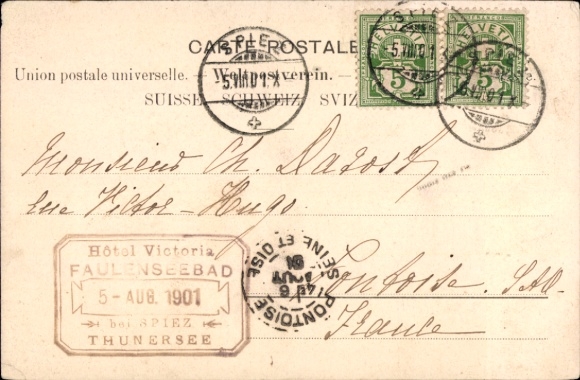 CARTE POSTALE
Union postale universelle. — Weltpostverein.
SUISSE SCHWEIZ
SPIEZ
5.VIII.01.X
FRANCO
HELVETIA
5
5
Monsieur Ch.
rue Victor-Hugo
Pontoise. S&O
France
Hôtel Victoria
FAULENSEEBAD
5-AUG.1901
bei SPIEZ
THUNERSEE
PONTOISE
6
AOUT
01
SEINE ET OISE